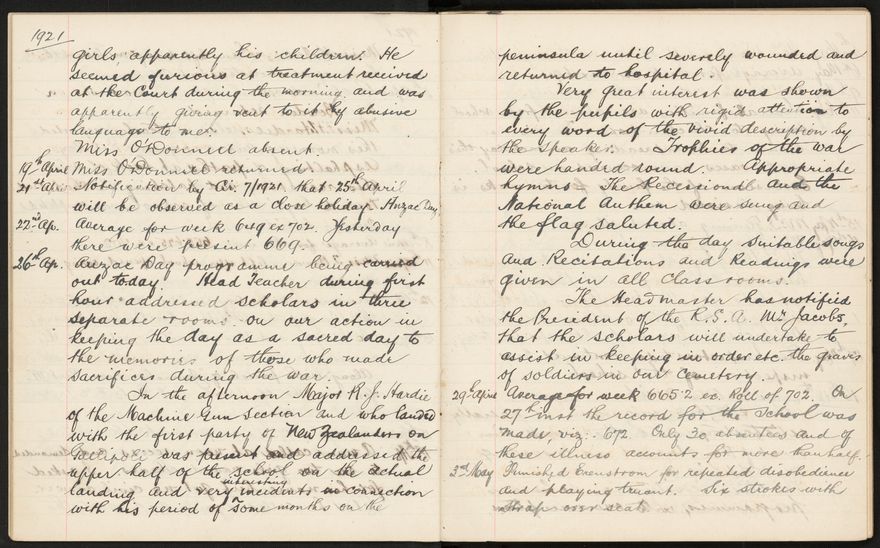 1921
girls, apparently his children. He
seemed furious at treatment received
at the Court during the morning and was
apparently giving vent to it by abusive
language to me.
Miss O'Donnell absent.
19th April Miss O'Donnell returned.
21st Ap. Notification by Cir. 7/1921 that 25th April
will be observed as a close holiday. Anzac Day
22nd Ap. Average for week 649 ex 702. Yesterday
there were present 669.
26th Ap. Anzac Day programme being carried
out today. Head Teacher during first
hour addressed scholars in three
separate rooms on our action in
keeping the day as a sacred day to
the memories of those who made
sacrifices during the war.
In the afternoon Major R. J. Hardie
of the Machine Gun Section and who landed
with the first party of New Zealanders on
Gallipoli was present and addressed the
upper half of the school on the actual
landing and very interesting incidents in connection
with his period of some months on the
peninsula until severely wounded and
returned to hospital.
Very great interest was shown
by the pupils with rigid attention to
every word of the vivid description by
the speaker. Trophies of the war
were handed round. Appropriate
hymns The Recessional and the
National Anthem were sung and
the flag saluted.
During the day suitable songs
and Recitations and Readings were
given in all class rooms.
The Headmaster has notified
the President of the R.S.A. Mr Jacobs,
that the scholars will undertake to
assist in keeping in order etc. the graves
of soldiers in our Cemetery.
29th April Average for week 665.2 ex. Roll of 702. On
27th inst the record for the school was
made, viz:- 672. Only 30 absentees and of
these illness accounts for more than half.
3rd May Punished for repeated disobedience
and playing truant. Six strokes with
strap over seat.